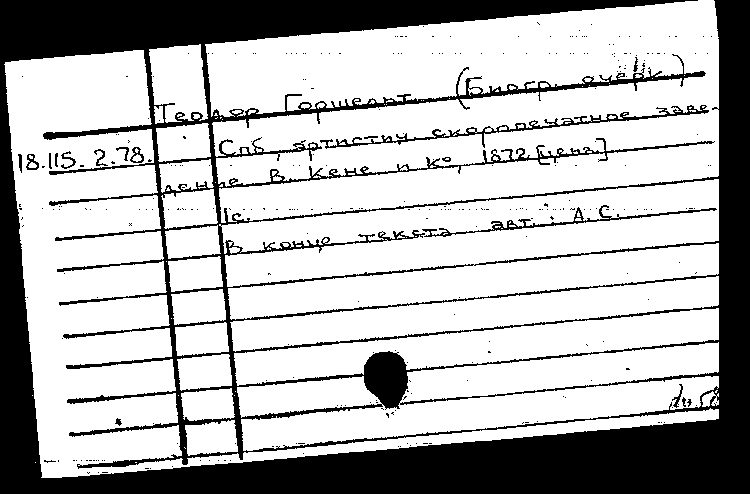 Теодор Горшельт (Биогр. очерк)
18.115.2.78. Спб, артистич. скоропечатное заве-
дение В. Кене и К°, 1872 [цена]
1с.
В конце текста авт.: А.С.